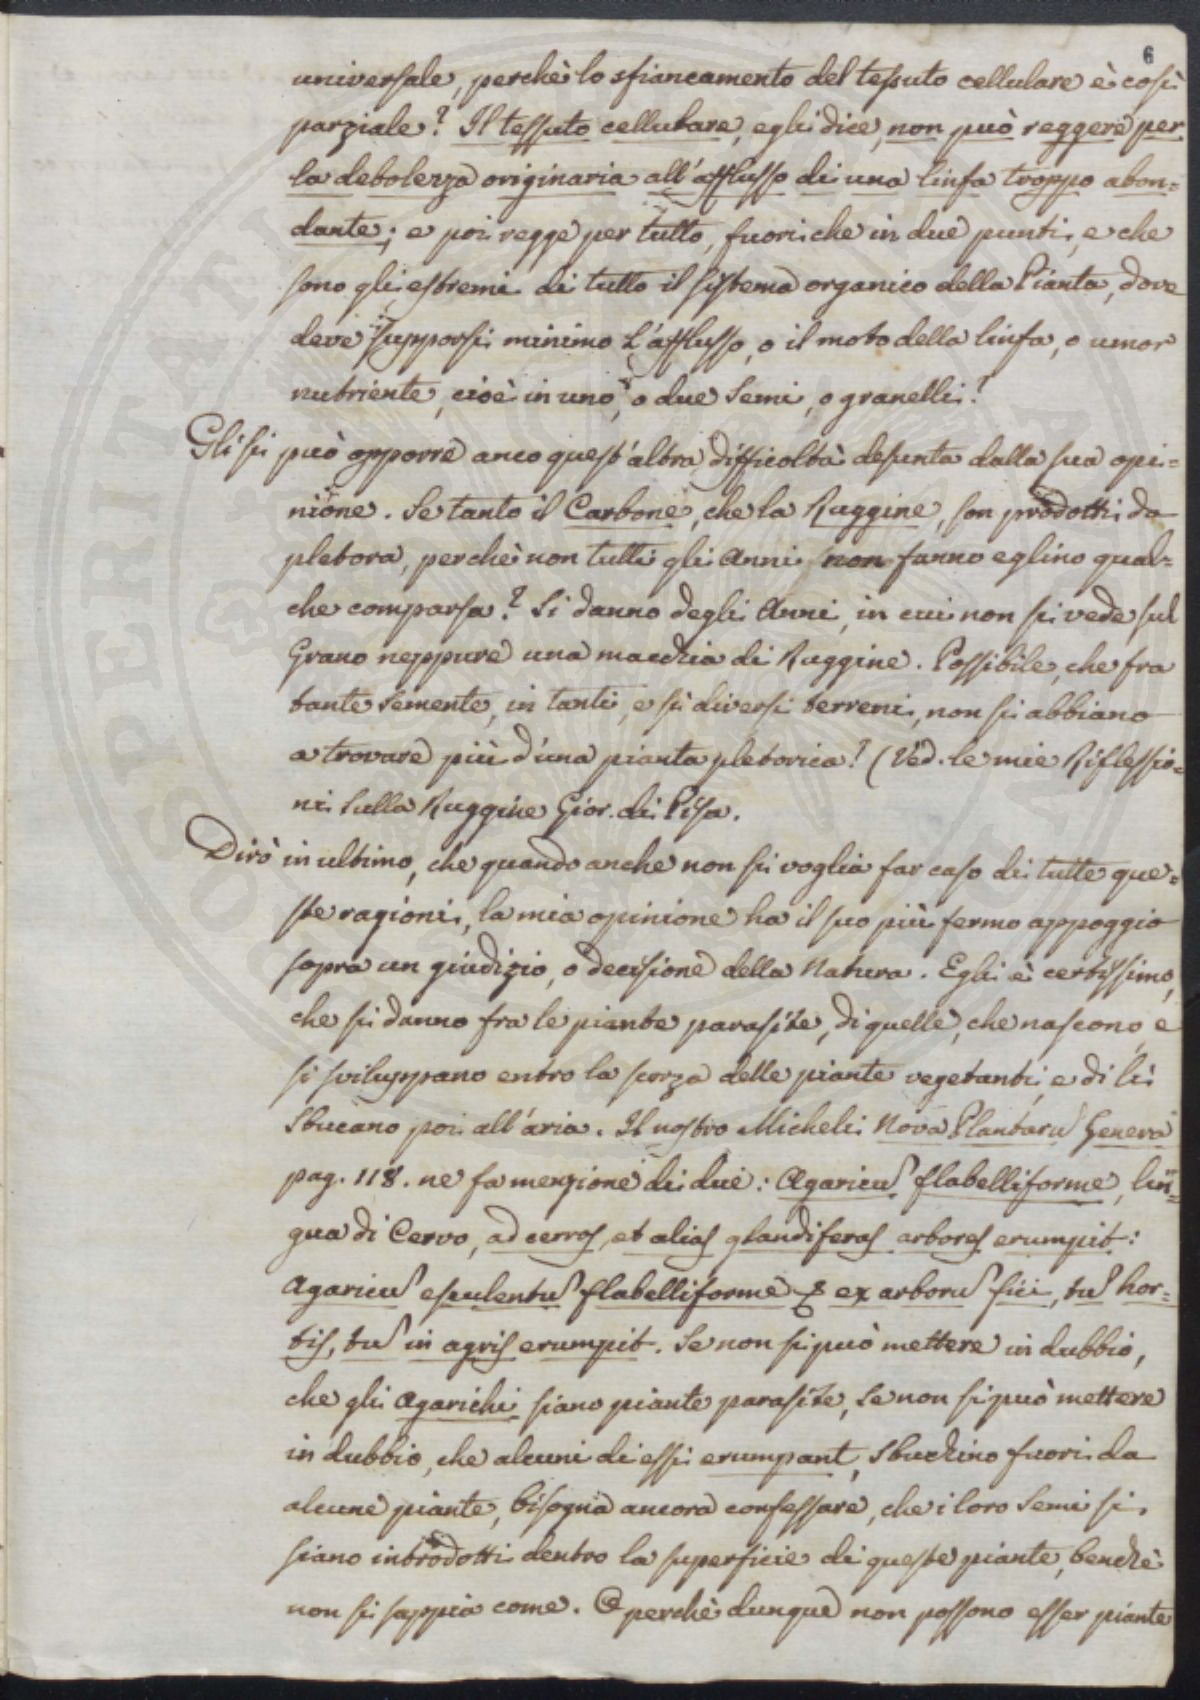 6
universale, perchè lo sfiancamento del tessuto cellulare è così
parziale? Il tessuto cellulare, egli dice, non può reggere per
la debolezza originaria all'afflusso di una linfa troppo abon=
dante; e poi regge per tutto, fuori che in due punti, e che
sono gli estremi di tutto il sistema organico della Pianta, dove
deve supporsi minimo l'afflusso, o il moto della linfa, o umor
nutriente, cioè in uno, o due semi, o granelli?
Gli si può opporre anco quest'altra difficoltà desunta dalla sua opi=
nione. Se tanto il Carbone, che la Ruggine, son prodotti da
pletora, perchè non tutti gli Anni non fanno eglino qual=
che comparsa? Si danno degli Anni, in cui non si vede sul
Grano neppure una macchia di Ruggine. Possibile, che fra
tante semente, in tanti, e sì diversi terreni, non si abbiano
a trovare più d'una pianta pletorica? (Ved. le mie Riflessio=
ni sulla Ruggine Gior. di Pisa.
Dirò in ultimo, che quando anche non si voglia far caso di tutte que=
ste ragioni, la mia opinione ha il suo più fermo appoggio
sopra un giudizio, o decisione della Natura. Egli è certissimo,
che si danno fra le piante parasite, di quelle, che nascono, e
si sviluppano entro la scorza delle piante vegetanti, e di lì
sbucano poi all'aria. Il nostro Micheli Nova Plantaru Genera
pag. 118. ne fa menzione di due: Agaricus flabelliforme, lin=
gua di Cervo, ad cerros, et alias glandiferas arbores erumpit:
Agaricus esculentus flabelliforme & ex arboru fici, tu hor=
tis, tu in agris erumpit. Se non si può mettere in dubbio,
che gli Agarichi siano piante parasite, se non si può mettere
in dubbio, che alcuni di essi erumpant, sbuchino fuori da
alcune piante, bisogna ancora confessare, che i loro semi si
siano introdotti dentro la superficie di queste piante, benchè
non si sappia come. E perchè dunque non possono esser piante